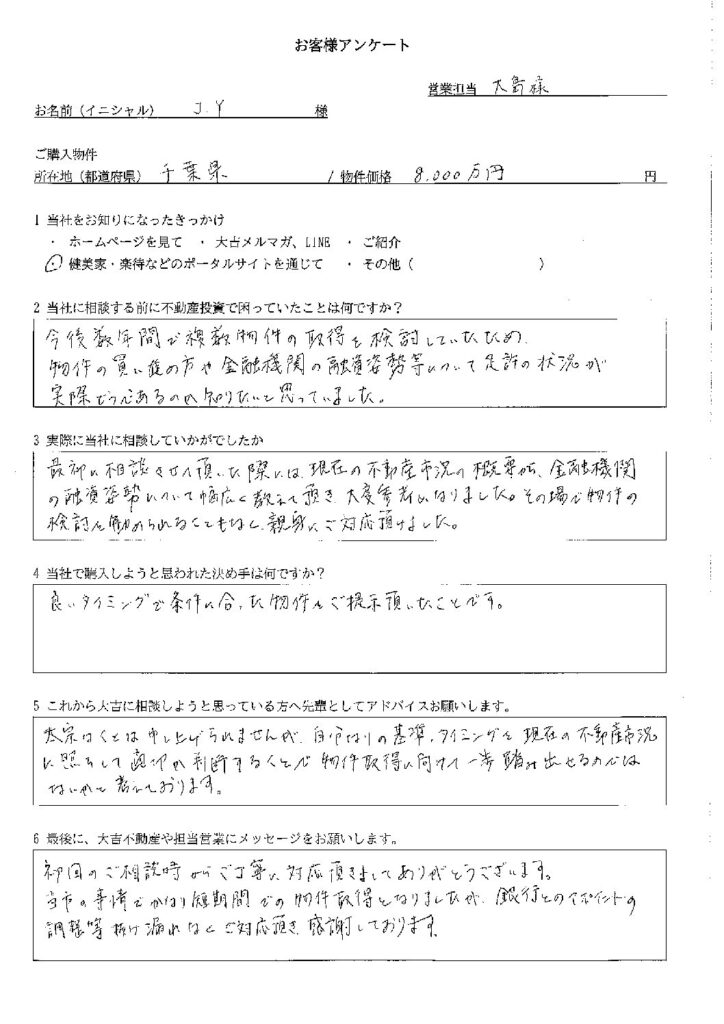 お客様アンケート
営業担当 大島様
お名前（イニシャル） J.Y 様
ご購入物件
所在地（都道府県） 千葉県 / 物件価格 8,000万円 円
1 当社をお知りになったきっかけ
・ ホームページを見て ・ 大吉メルマガ、LINE ・ ご紹介
・ 健美家・楽待などのポータルサイトを通じて ・ その他（ ）
2 当社に相談する前に不動産投資で困っていたことは何ですか？
今後数年間で複数物件の取得を検討していたため、
物件の買い進め方や金融機関の融資姿勢等について足許の状況が
実際どうであるのか知りたいと思っていました。
3 実際に当社に相談していかがでしたか
最初に相談させて頂いた際には、現在の不動産市況の概要から、金融機関
の融資姿勢について幅広く教えて頂き、大変参考になりました。その場で物件の
検討を勧められることもなく、親身にご対応頂けました。
4 当社で購入しようと思われた決め手は何ですか？
良いタイミングで条件に合った物件をご提示頂いたことです。
5 これから大吉に相談しようと思っている方へ先輩としてアドバイスお願いします。
大層なことは申し上げられませんが、自分なりの基準、タイミングを現在の不動産市況
に照らして適切に判断することで物件取得に向けて一歩踏み出せるのでは
ないかと考えております。
6 最後に、大吉不動産や担当営業にメッセージをお願いします。
初回のご相談時からご丁寧に対応頂きましてありがとうございます。
当方の事情でかなり短期間での物件取得となりましたが、銀行とのアポイントの
調整等抜け漏れなくご対応頂き、感謝しております。